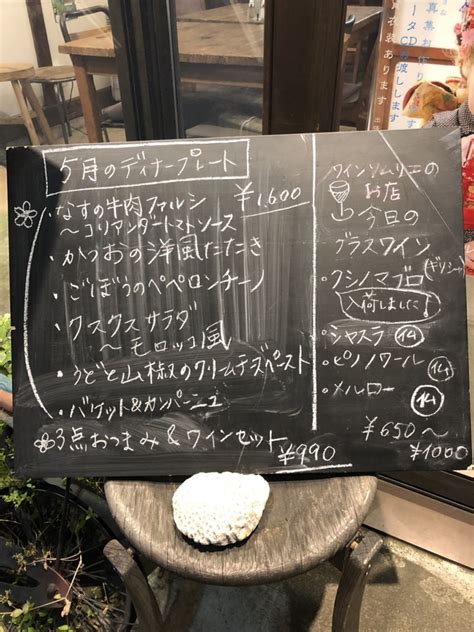 5月のディナープレート
¥1,600
・なすの牛肉ファルシ
〜コリアンダートマトソース
・かつおの洋風たたき
・ごぼうのペペロンチーノ
・クスクスサラダ
〜モロッコ風
・うどと山椒のクリームチーズペースト
・バゲット&カンパーニュ
3点おつまみ&ワインセット
¥990
ワインソムリエの
お店
今日の
グラスワイン
・クシノマブロ(ギリシャ)
入荷しました!
・シャスラ
・ピノノワール
・メルロー
¥650〜
¥1000
真集お作り
ータCDお渡しします
衣装あります